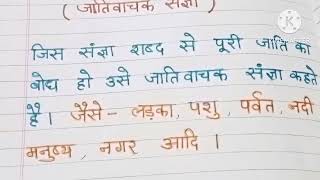 ( जातिवाचक संज्ञा )
जिस संज्ञा शब्द से पूरी जाति का
बोध हो उसे जातिवाचक संज्ञा कहते
है । जैसे - लड़का, पशु , पर्वत, नदी
मनुष्य , नगर आदि ।